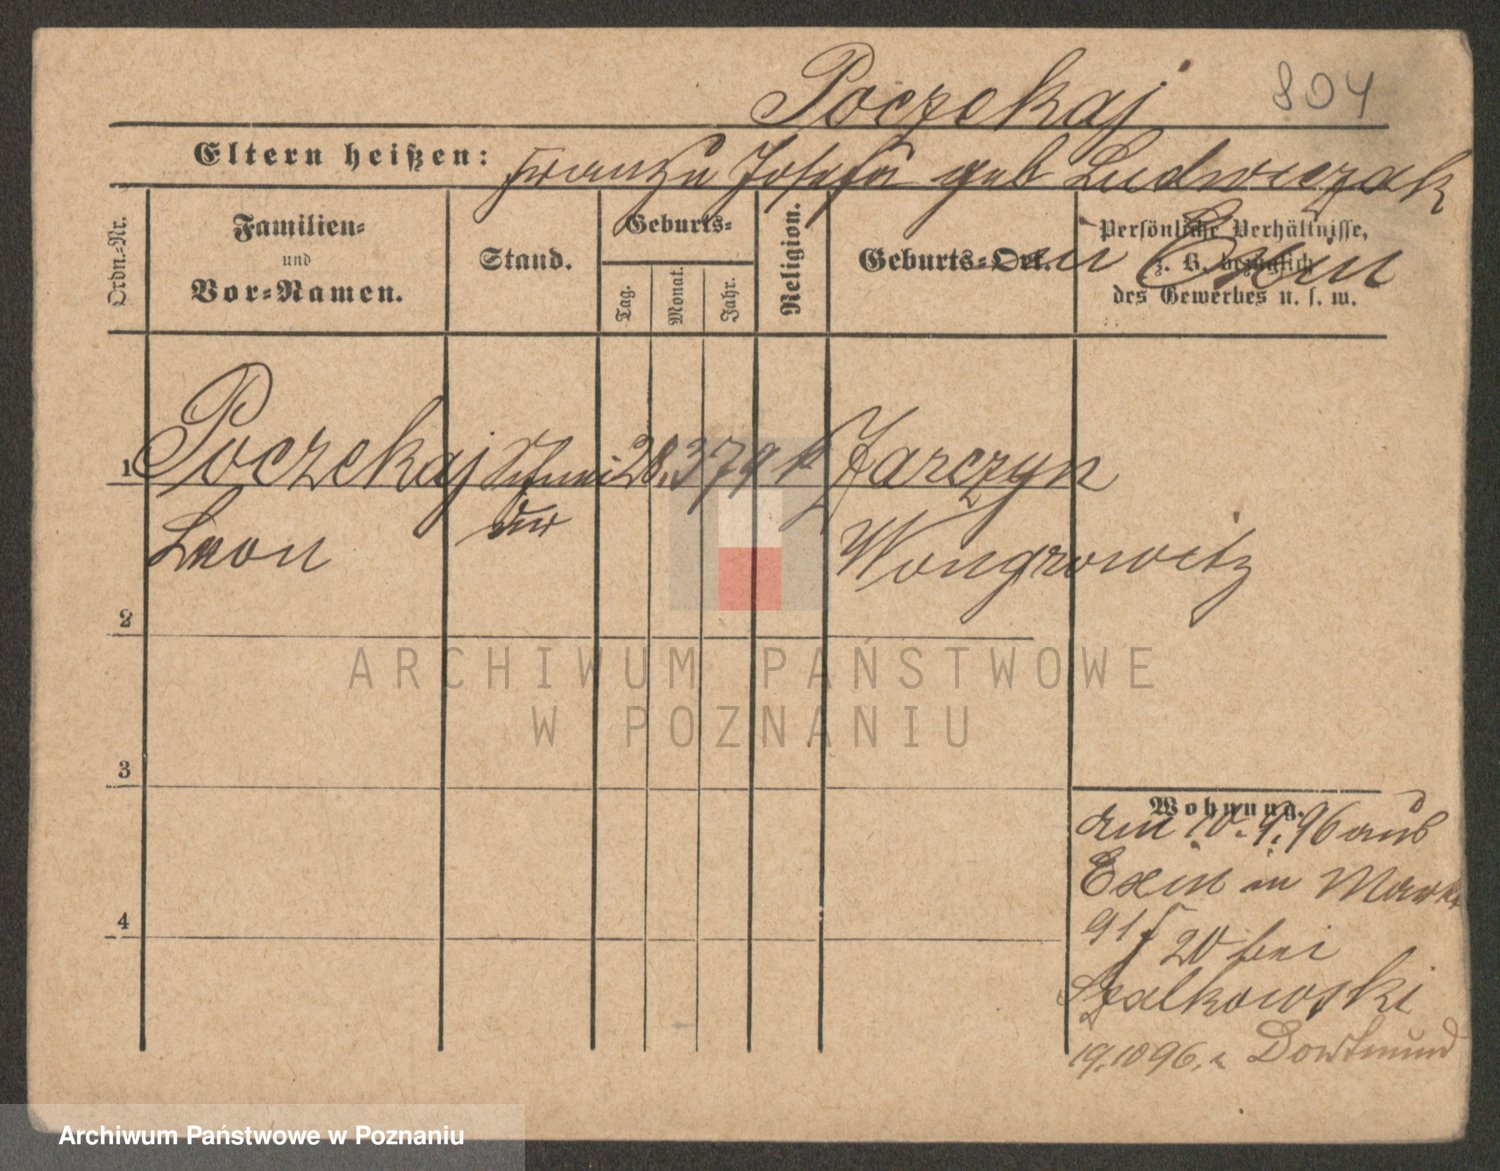 Poczekaj 804
Eltern heißen: Franz u Josefa geb Ludwiczak
in Exin
Ordn.-Nr.
Familien-
und
Vor-Namen.
Stand.
Geburts-
Tag.
Monat.
Jahr.
Religion.
Geburts-Ort.
Persönliche Verhältnisse,
z. B. bezüglich
des Gewerbes u. s. w.
1 Poczekaj Schnei 28. 3 79 k Jarczyn
Leon der Wongrowitz
2
3
4
Wohnung.
am 10.9.96 aus
Exin in Markt
91 20 bei
Szalkowski
19.10 96. n Dortmund
ARCHIWUM PAŃSTWOWE
W POZNANIU
Archiwum Państwowe w Poznaniu